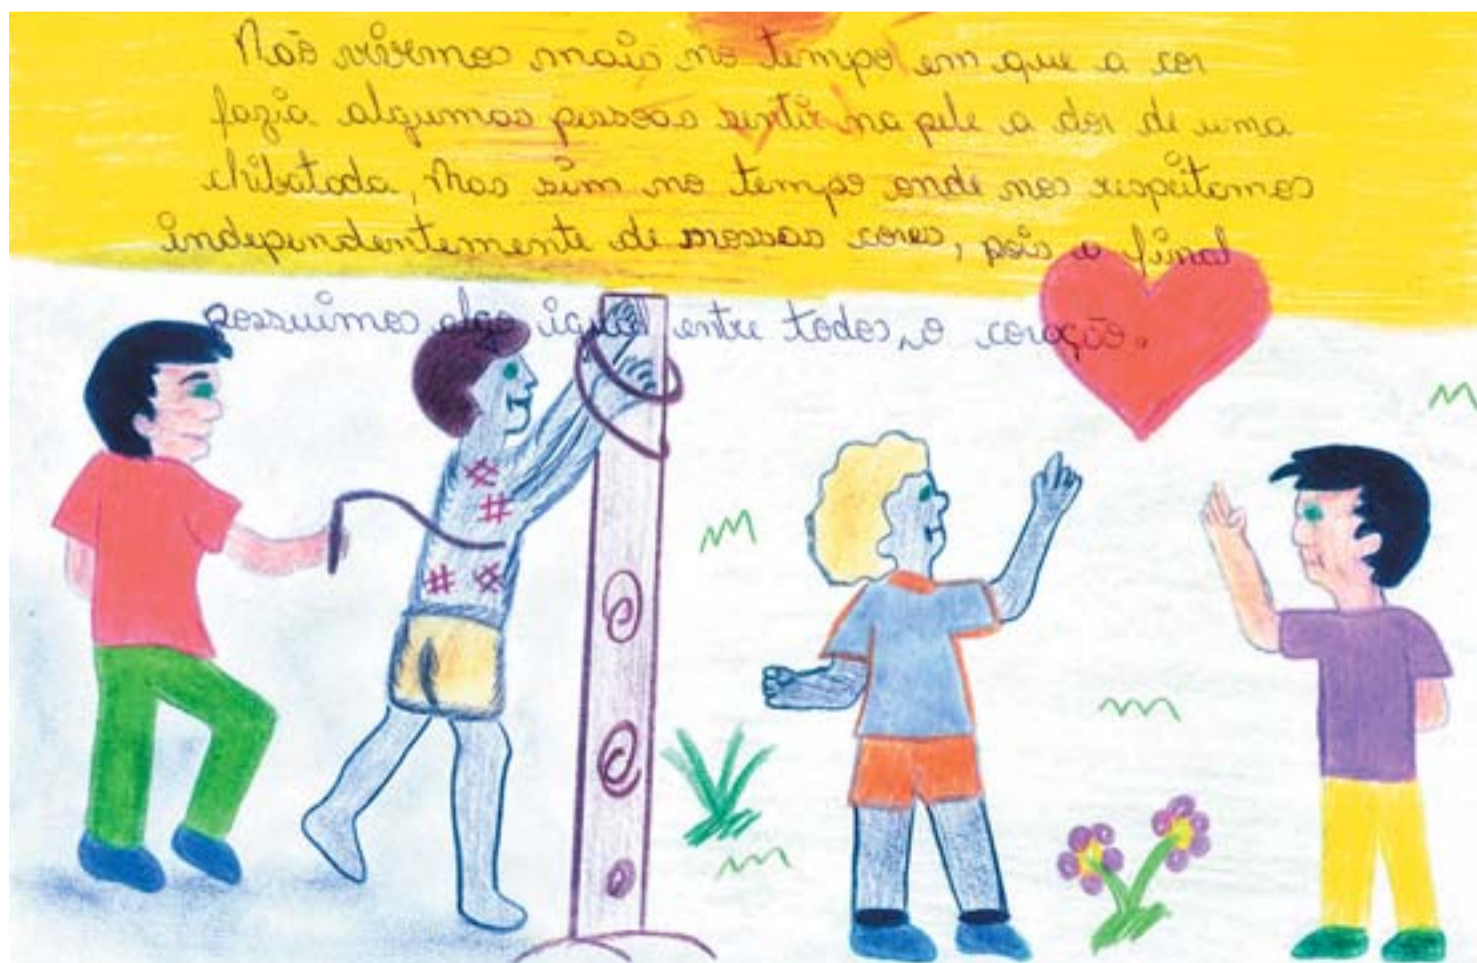 Não vivemos mais no tempo em que a cor
fazia algumas pessoas sentir na pele a dor de uma
chibatada, Mas sim no tempo onde nos respeitamos
independentemente de nossas cores, pois a final
possuimos algo igual entre todos, o coração.